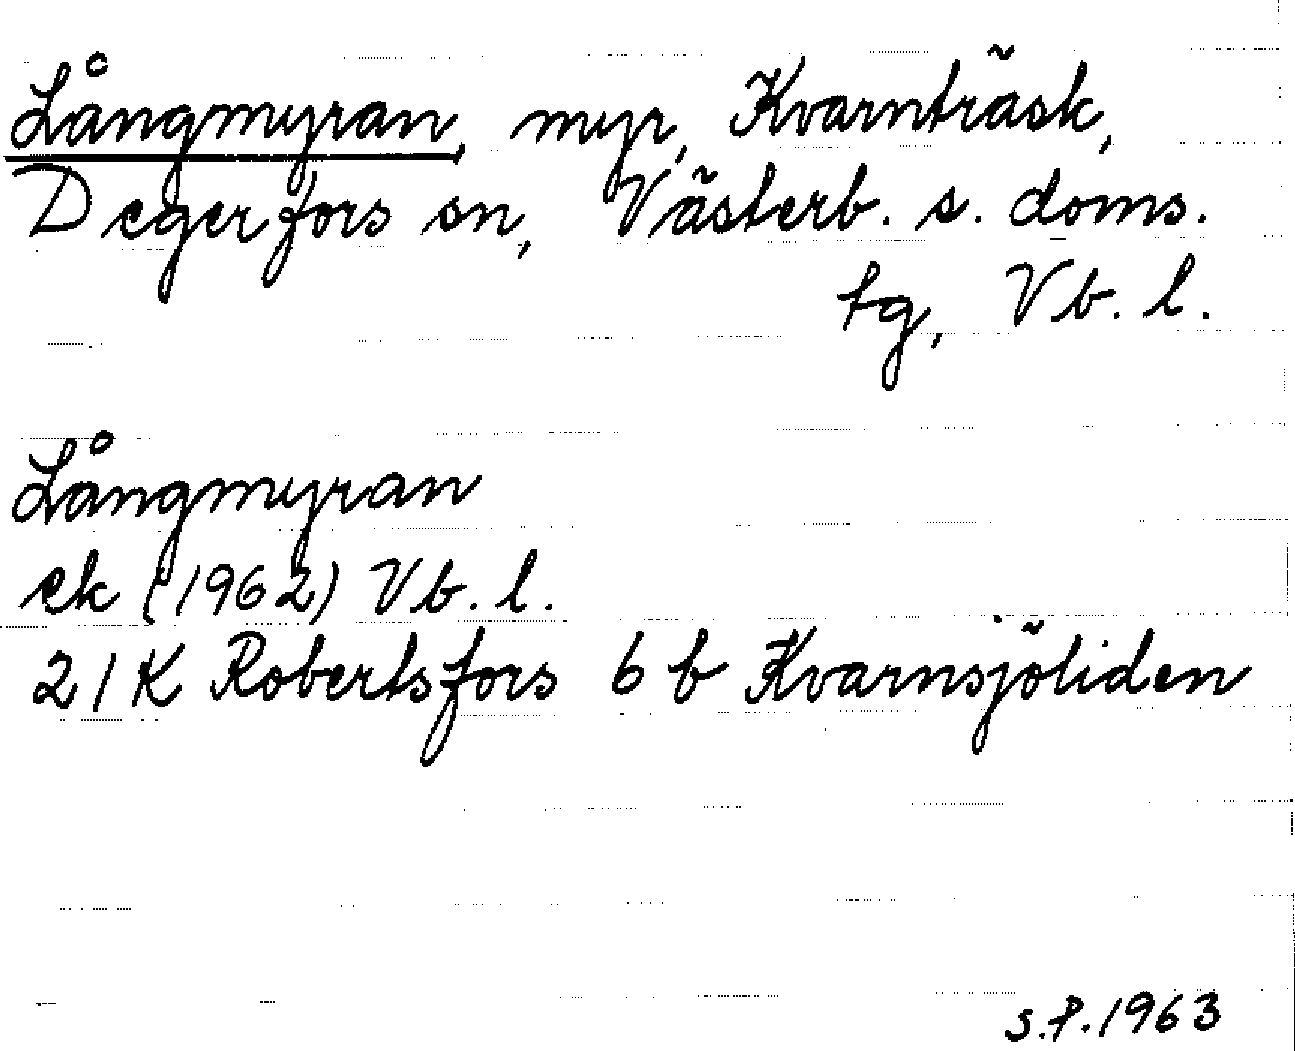 Långmyran, myr, Kvarnträsk,
Degerfors sn, Västerb. s. doms.
tg, Vb. l.
Långmyran
ek (1962) Vb. l.
21K Robertsfors 6 b Kvarnsjöliden
S.P. 1963